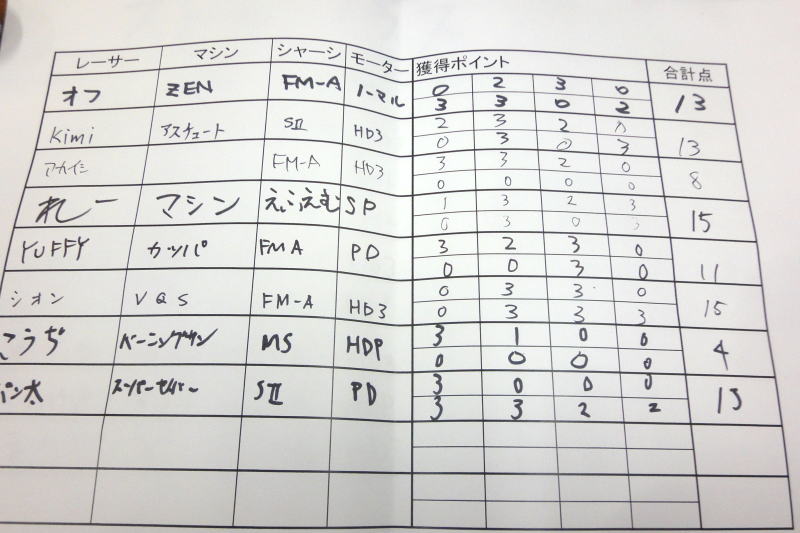 レーサー マシン シャーシ モーター 獲得ポイント 合計点
オフ ZEN FM-A ノーマル 0 2 3 0 13
3 3 0 2
Kimi アスチュート SII HD3 2 3 2 0 13
0 3 0 3
アカイシ FM-A HD3 3 3 2 0 8
0 0 0 0
れしー マシン えふえむ SP 1 3 2 3 15
0 3 0 3
YUFFY カッパ FMA PD 3 2 3 0 11
0 0 3 0
シオン VQS FM-A HD3 0 3 3 0 15
0 3 3 3
こうぢ バーニングサン MS HDP 3 1 0 0 4
0 0 0 0
パン太 スーパーセイバー SII PD 3 0 0 0 13
3 3 2 2